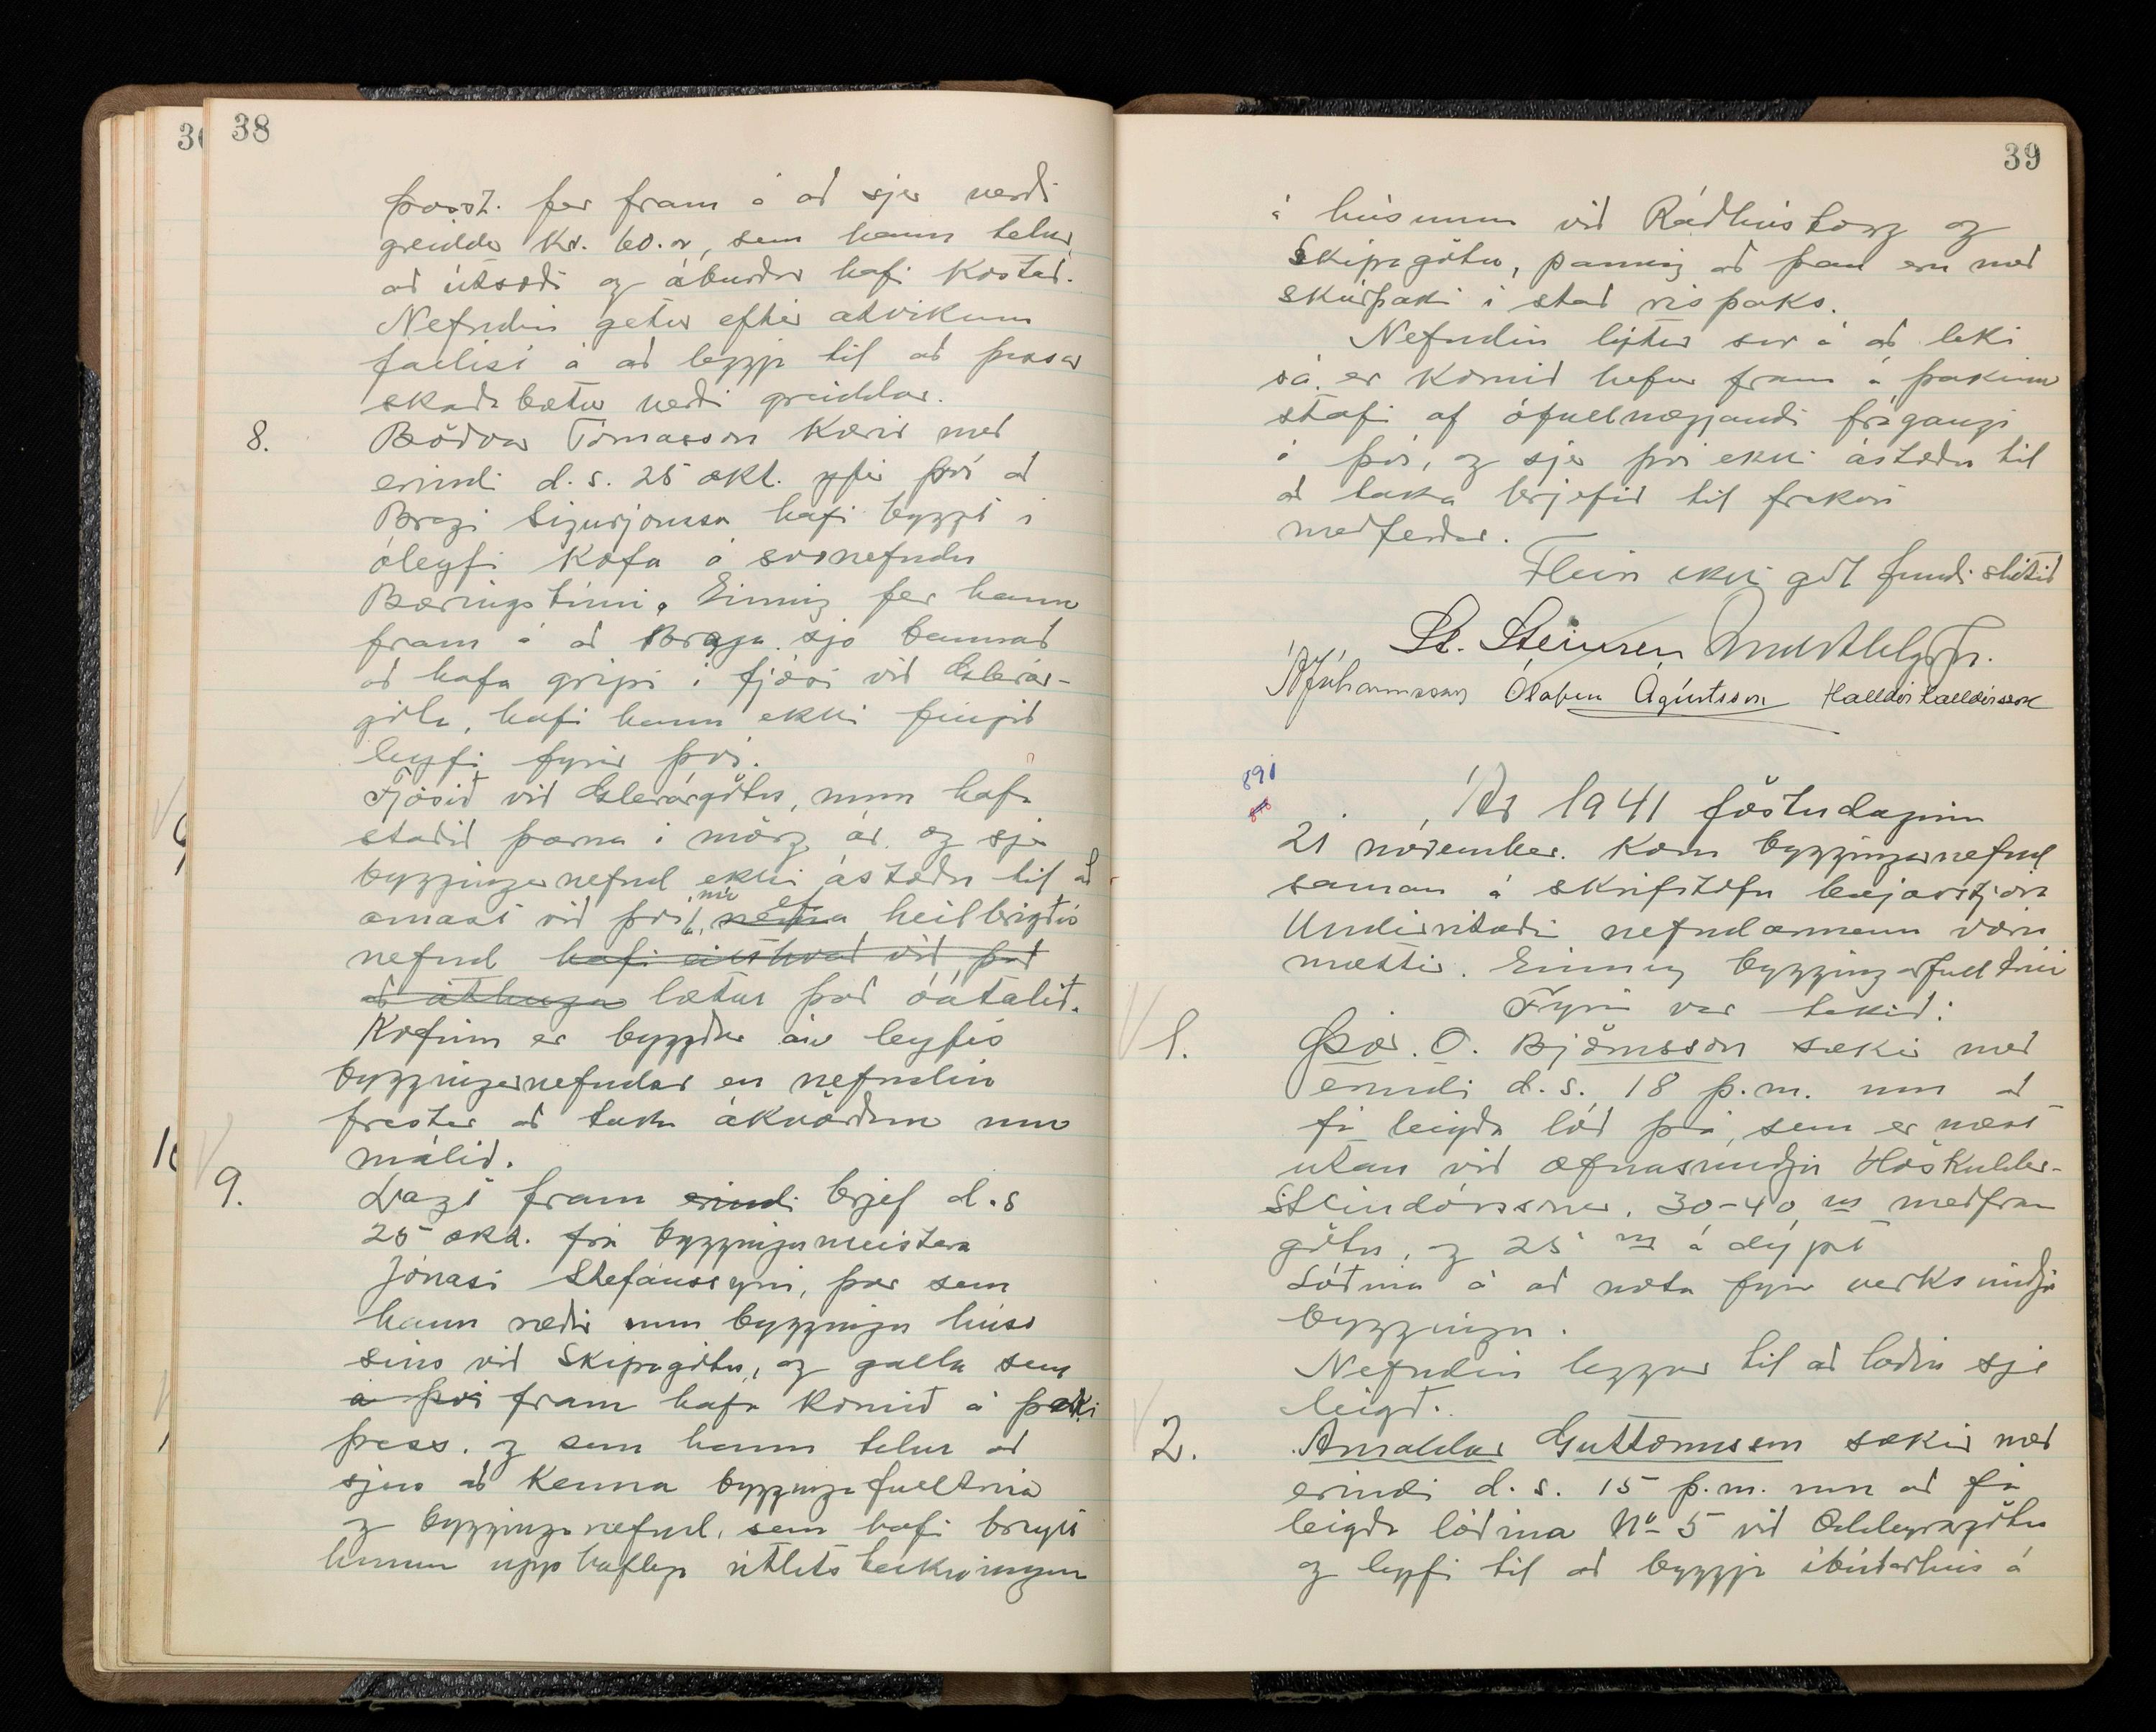 38
Þorst. fer fram á að sjer verði
greiddar Kr. 60.oo, sem hann telur
að útsæði og áburður hafi kostað.
Nefndin getur eftir atvikum
fallist á að leggja til að þessar
skaðabætur verði greiddar.
8. Böðvar Tómasson kærir með
erindi d.s. 25 okt. yfir því að
Bragi Sigurjónsson hafi byggt í
óleyfi kofa á svonefndu
Bæringstúni. Einnig fer hann
fram á að Braga sje bannað
að hafa gripi í fjósi við Glerár-
götu, hafi hann ekki fengið
leyfi fyrir því.
Fjósið við Glerárgötu, mun hafa
staðið þarna í mörg ár og sjer
byggingarnefnd ekki ástæðu til að
amast við því, nú nema ef heilbrigðis
nefnd hafi eitthvað við það
að athuga lætur það óátalið.
Kofinn er byggður án leyfis
byggingarnefndar en nefndin
frestar að taka ákvörðun um
málið.
9. Lagt fram erindi brjef d.s
25 okt. frá byggingameistara
Jónasi Stefánssyni, þar sem
hann ræðir um byggingu húss
síns við Skipagötu, og galla sem
á því fram hafa komið á þaki
þess. og sem hann telur að
sjeu að kenna byggingafulltrúa
og bygginganefnd, sem hafi breytt
hinum upphaflega útlitsteikningum
39
á húsunum við Ráðhústorg og
Skipagötu, þannig að þau eru með
skúrþaki í stað risþaks.
Nefndin lýtur svo á að leki
sá er komið hefur fram á þakinu
stafi af ófullnægjandi frágangi
á því, og sjer því ekki ástæðu til
að taka brjefið til frekari
meðferðar.
Fleira ekki gert fundi slitið
St. Steinsen
Á Jóhannsson Ólafur Ágústsson Halldór Halldórsson
891
Ár 1941 föstudaginn
21 nóvember. Kom byggingarnefnd
saman á skrifstofu bæjarstjóra
Undirritaðir nefndarmenn voru
mættir. Einnig byggingarfulltrúi
Fyrir var tekið:
1. Þór. O. Björnsson sækir með
erindi d.s. 18 þ.m. um að
fá leigða lóð þá, sem er næst
utan við ofnasmiðju Höskuldar
Steindórssonar, 30-40 m meðfram
götu, og 25 m á dýpt
Lóðina á að nota fyrir verksmiðju
byggingu.
Nefndin leggur til að lóðin sje
leigð.
2. Arnaldur Guttormsson sækir með
erindi d.s. 15 þ.m. um að fá
leigða lóðina No 5 við Oddeyrargötu
og leyfi til að byggja íbúðarhús á